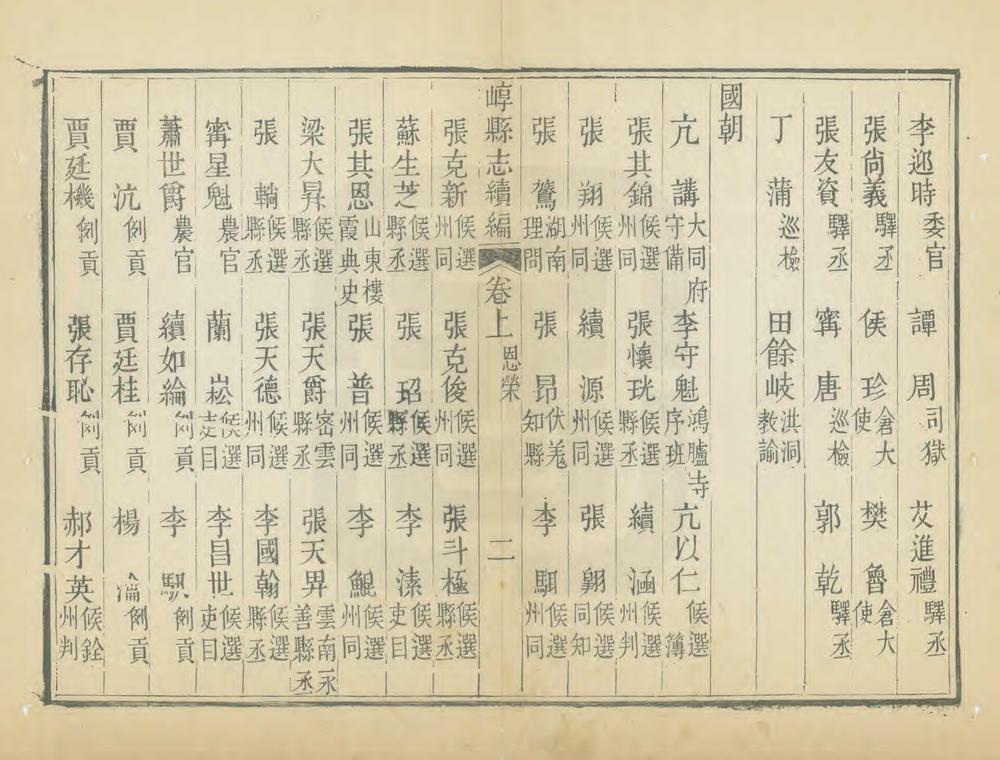 李迎時委官　譚周司獄　艾進禮驛丞
張尚義驛丞　侯珍倉大使　樊魯倉大使
張友資驛丞　寗唐巡檢　郭乾驛丞
丁蒲巡檢　田餘岐洪洞教諭
國朝
亢講大同府守備　李守魁鴻臚寺序班　亢以仁候選簿
張其錦候選州同　張懷珖候選縣丞　續涵候選州判
張翔候選州同　續源候選州同　張翱候選同知
張鶩湖南理問　張昂伏羌知縣　李駬候選州同
崞縣志續編　卷上　恩榮　二
張克新候選州同　張克俊候選州同　張斗極候選縣丞
蘇生芝候選縣丞　張玿候選縣丞　李溱候選吏目
張其恩山東樓霞典史　張普候選州同　李鯤候選州同
梁大昇候選縣丞　張天爵密雲縣丞　張天畀雲南永善縣丞
張輈候選縣丞　張天德候選州同　李國翰候選縣丞
寗星魁農官　蘭崧候選吏目　李昌世候選吏目
蕭世爵農官　續如綸例貢　李馹例貢
賈沆例貢　賈廷桂例貢　楊瀹例貢
賈廷機例貢　張存恥例貢　郝才英候銓州判